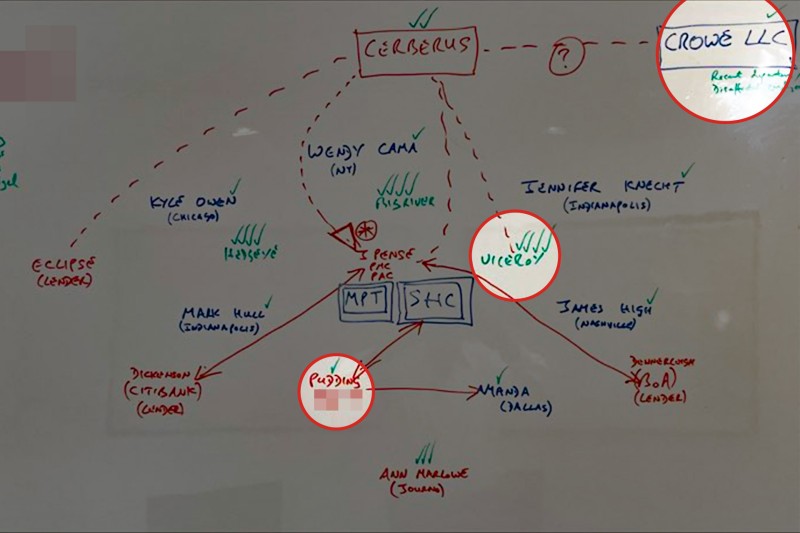 CERBERUS
?
CROWE LLC
Recent
WENDY CAMA
(NY)
JENNIFER KNECHT
(INDIANAPOLIS)
KYLE OWEN
(CHICAGO)
BIGRIVER
HEDGEYE
VICEROY
ECLIPSE
(LENDER)
*
IPENSE
PMC
PAC
MPT
SHC
MARK HULL
(INDIANAPOLIS)
JAMES HIGH
(NASHVILLE)
DICKENSON
(CITIBANK)
(LENDER)
PUDDING
AMANDA
(DALLAS)
(BoA)
(LENDER)
ANN MARLOWE
(JOURNO)